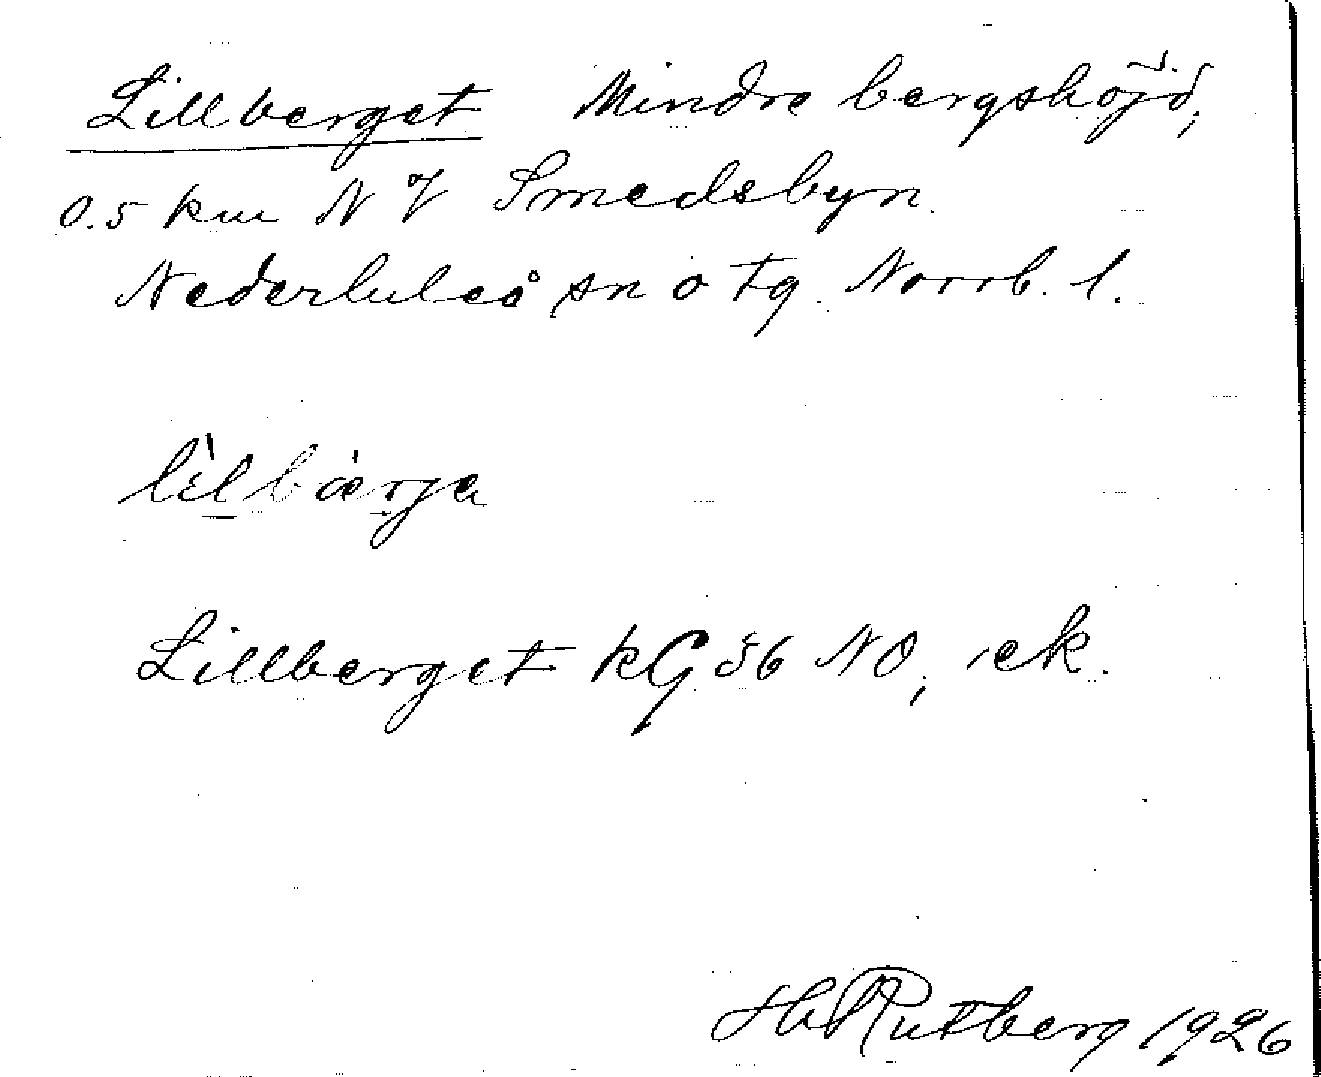 Lillberget Mindre bergshöjd,
0.5 km N af Smedsbyn.
Nederluleå sn o tg. Norrb. l.
lilbærja
Lillberget KG 56 NO, ek.
H. Rutberg 1926